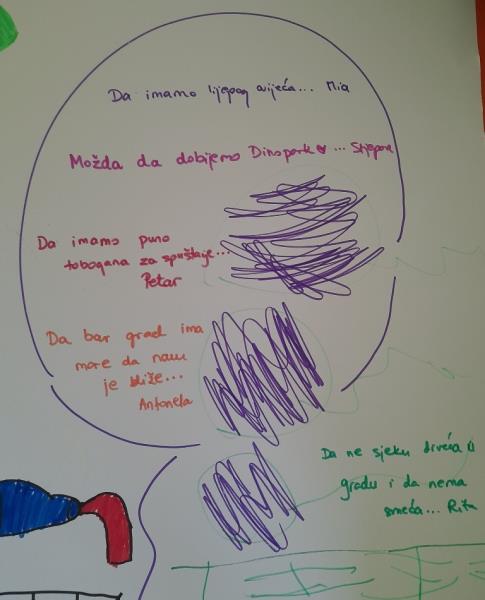 Da imamo lijepog cvijeća... Mia
Možda da dobijemo Dinopark ... Stjepan
Da imamo puno
tobogana za spuštaje...
Petar
Da bar grad ima
more da nam
je bliže...
Antonela
Da ne sjeku drveća u
gradu i da nema
smeća... Rita